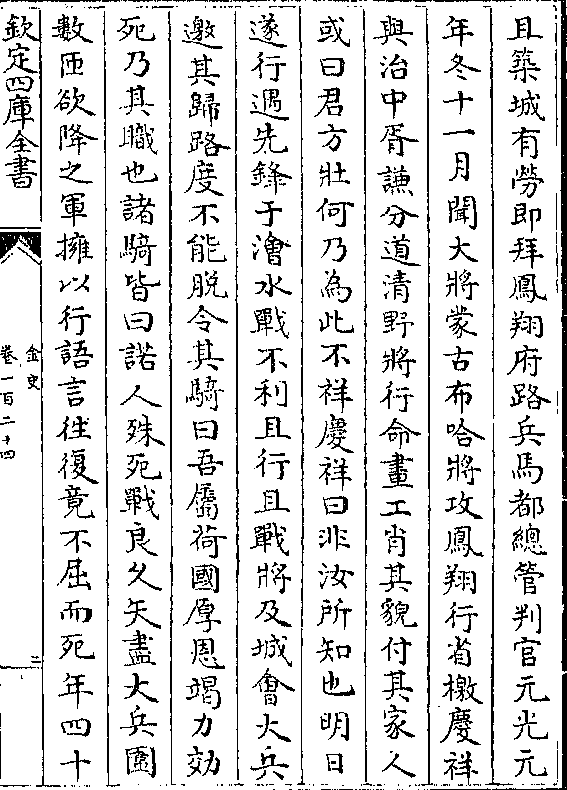 且築城有勞即拜鳳翔府路兵馬都總管判官元光元
年冬十一月聞大將蒙古布哈將攻鳳翔行省檄慶祥
與治中胥謙分道清野將行命畫工肖其貌付其家人
或曰君方壯何乃為此不祥慶祥曰非汝所知也明日
遂行遇先鋒于澮水戰不利且行且戰將及城會大兵
邀其歸路度不能脱令其騎曰吾屬荷國厚恩竭力効
死乃其職也諸騎皆曰諾人殊死戰良久矢盡大兵圍
數匝欲降之軍擁以行語言往復竟不屈而死年四十
欽定四庫全書
金史
卷一百二十四
三